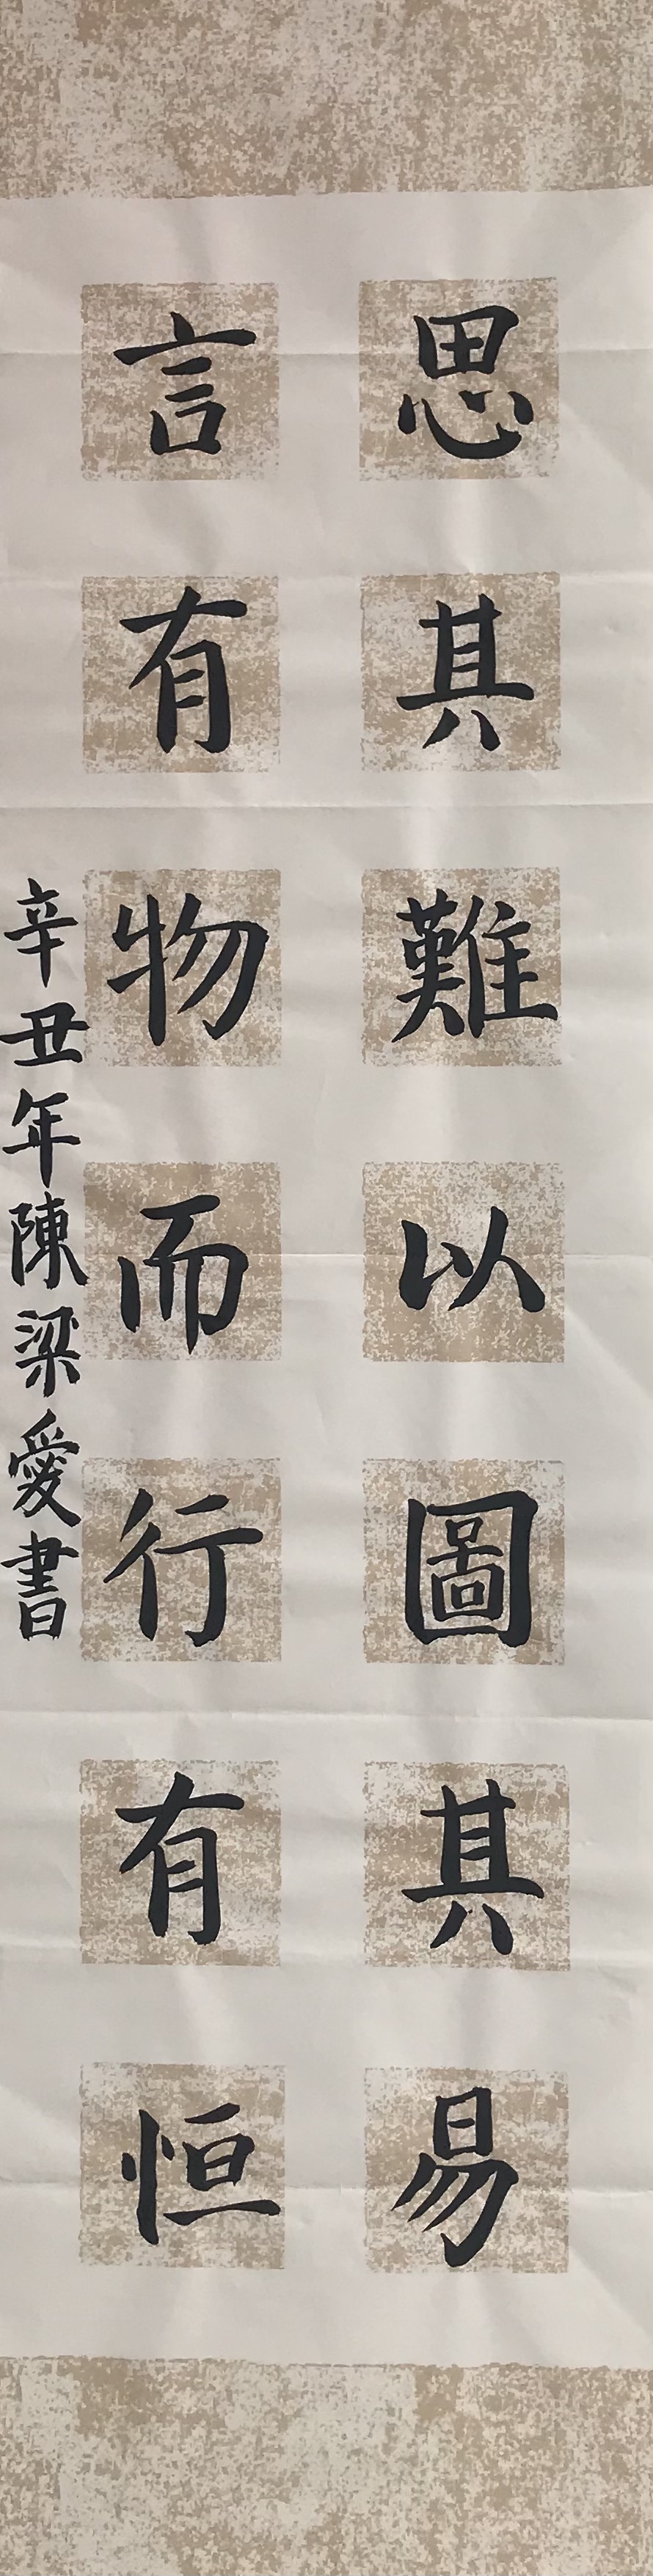 思其難以圖其易
言有物而行有恒
辛丑年陳梁愛書